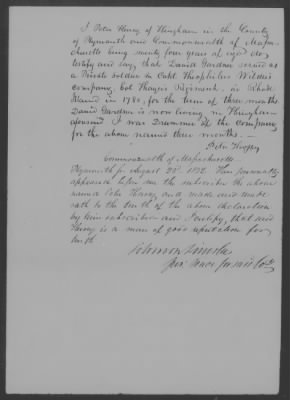 I Peter Hersey of Hingham in the County
of Plymouth and Commonwealth of Massa-
chusetts being seventy four years of age do
testify and say, that David Gardner served as
a Private Soldier in Capt Theophilus Wilder's
company, Col Thayers Regiment, in Rhode
Island in 1780, for the term of three months
David Gardner is now living in Hingham
aforesaid I was Drummer of the Company
for the above named three months. —
Peter Hersey
Commonwealth of Massachusetts
Plymouth ss August 22d 1832. Then personally
appeared before me the subscriber the above
named Peter Hersey and made and made
oath to the truth of the above declaration
by him subscribed and I certify, that said
Hersey is a man of good reputation for
truth
Solomon Lincoln
Jus. Peace for said Co.